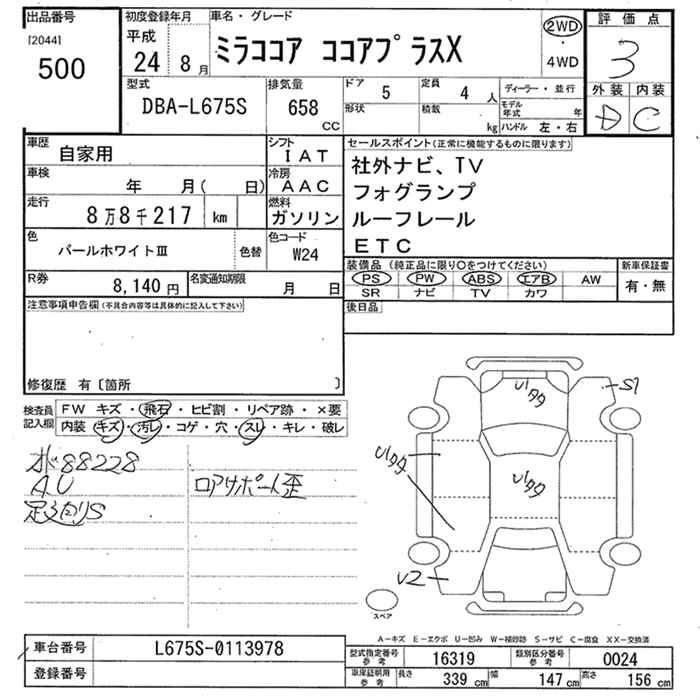 出品番号
[2044]
500
初度登録年月
平成
24
8月
車名・グレード
ミラココア ココアプラスX
2WD
・
4WD
評価点
3
外装 内装
D C
型式
DBA-L675S
排気量
658
CC
ドア 5
形状
定員 4人
積載 kg
ディーラー・並行
モデル年式 年
ハンドル 左・右
車歴
自家用
シフト
IAT
車検
年 月( 日)
冷房
AAC
走行
8万8千217 km
燃料
ガソリン
色
パールホワイトⅢ
色替
色コード
W24
R券
8,140円
名変通知期限
月 日
セールスポイント(正常に機能するものに限ります)
社外ナビ、TV
フォグランプ
ルーフレール
ETC
装備品 (純正品に限り○をつけてください)
PS PW ABS エアB AW
SR ナビ TV カワ
新車保証書
有・無
後日品
注意事項申告欄(不具合内容等は具体的に記入して下さい)
修復歴 有〔箇所 〕
検査員記入欄
FW キズ・飛石・ヒビ割・リペア跡・×要
内装 キズ・汚レ・コゲ・穴・スレ・キレ・破レ
88228
AU
ロアサポート歪
U1タタ
S1
U1タタ
U1タタ
U2
スペア
A−キズ E−エクボ U−凹み W−補修跡 S−サビ C−腐食 XX−交換済
車台番号
L675S-0113978
登録番号
型式指定番号
参考
16319
類別区分番号
参考
0024
車庫証明用
参考
長さ 339 cm
幅 147 cm
高さ 156 cm